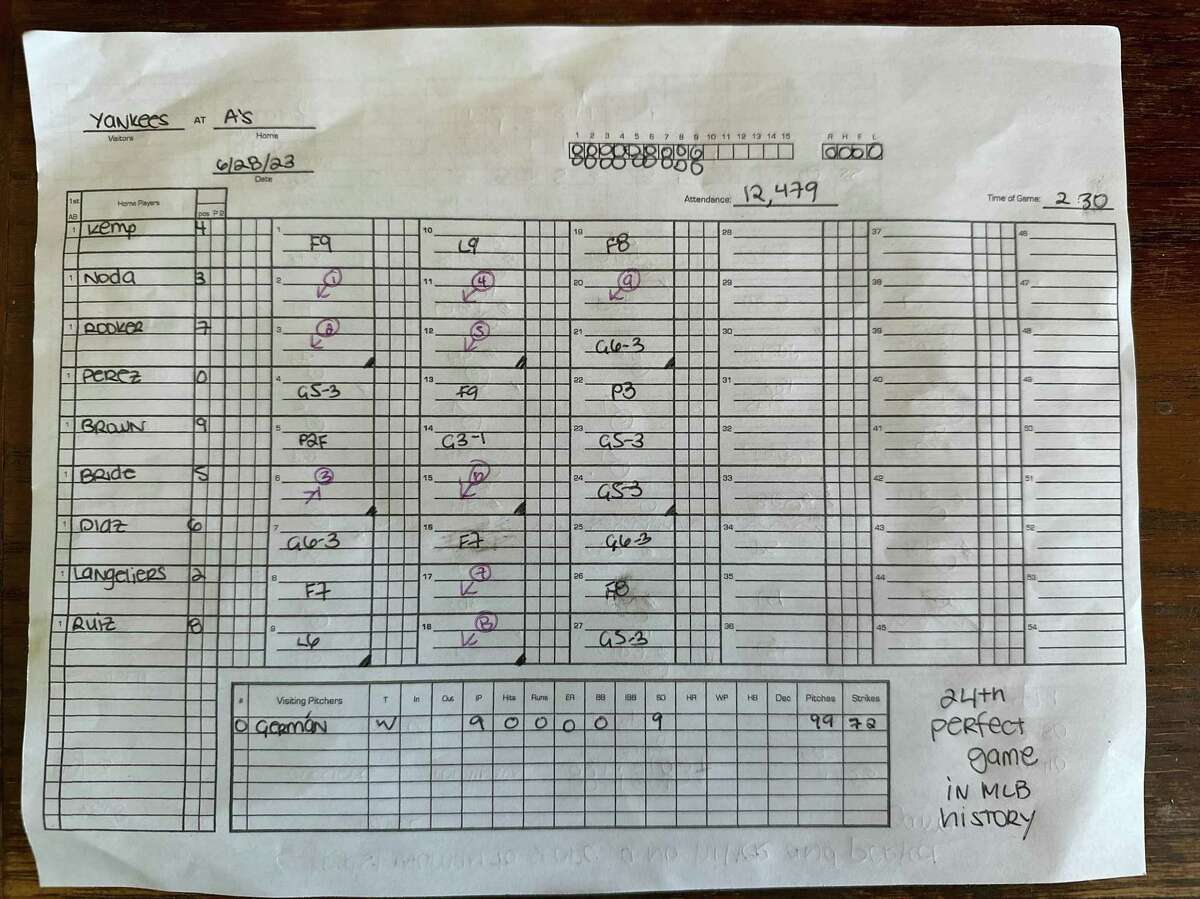 Yankees AT A's
Visitors Home
6/28/23
Date
1 2 3 4 5 6 7 8 9 10 11 12 13 14 15 R H E L
Attendance: 12,479 Time of Game: 2 30
1st AB Home Players pos
1 Kemp 4 1 F9 10 L9 19 F8 28 37 46
1 Noda 3 2 1 11 4 20 9 29 38 47
1 Rooker 7 3 2 12 5 21 G6-3 30 39 48
1 Perez 0 4 G5-3 13 F9 22 P3 31 40 49
1 Brown 9 5 P2F 14 G3-1 23 G5-3 32 41 50
1 Bride 5 6 3 15 6 24 G5-3 33 42 51
1 Diaz 6 7 G6-3 16 F7 25 G6-3 34 43 52
1 Langeliers 2 8 F7 17 7 26 F8 35 44 53
1 Ruiz 8 9 L6 18 8 27 G5-3 36 45 54
# Visiting Pitchers T In Out IP Hits Runs ER BB IBB SO HR WP HB Dec Pitches Strikes
0 Germán W 9 0 0 0 0 9 99 72
24th
perfect
game
in MLB
history